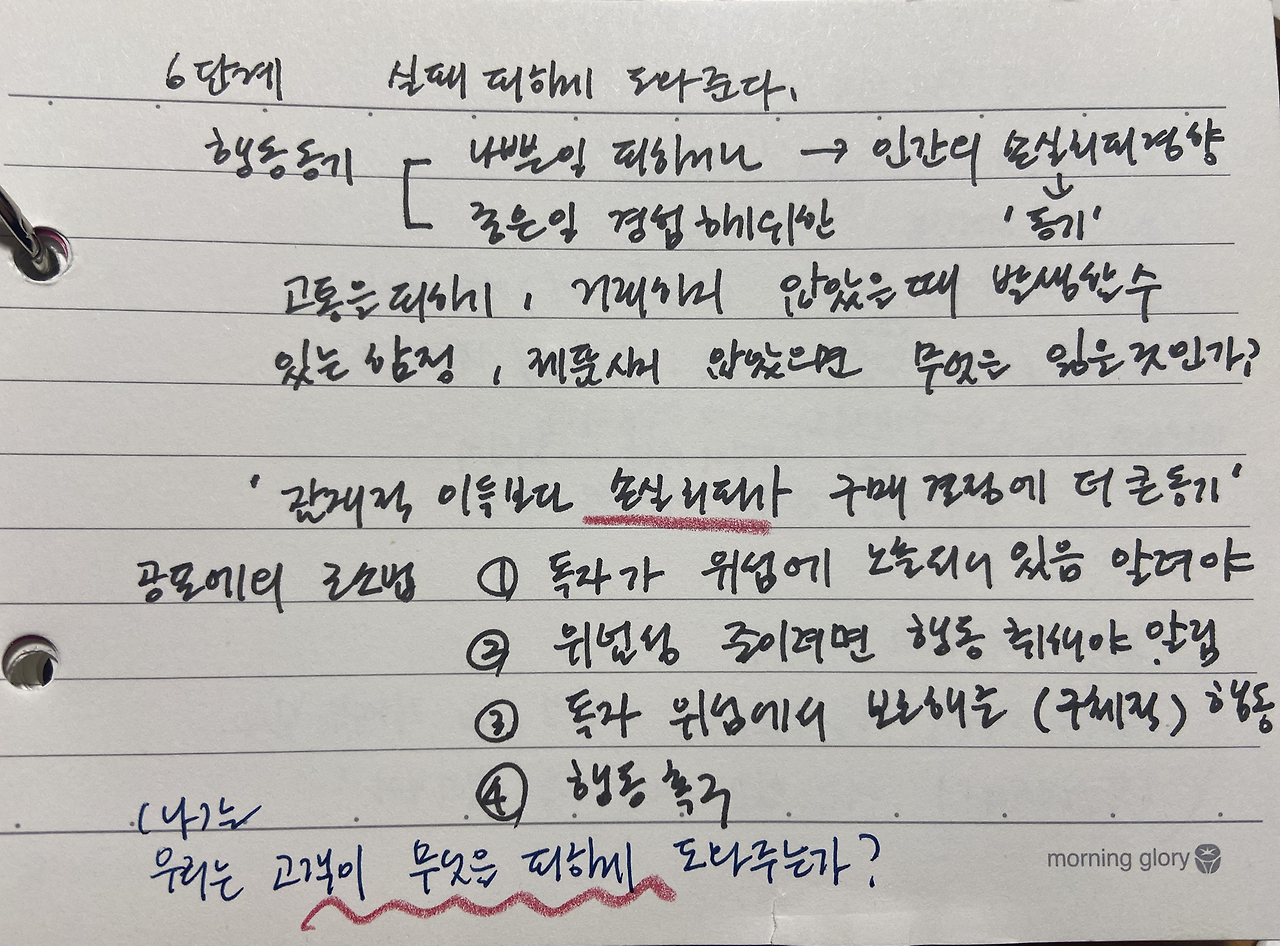 6단계 실패 피하게 도와준다.
행동동기 나쁜일 피하거나 → 인간의 손실회피경향
좋은일 경험하기위한 '동기'
고통을피하기, 거래하지 않았을때 발생할수
있는 함정, 제품사지 않았으면 무엇을 잃을것인가?
'잠재적 이득보다 손실회피가 구매결정에 더큰동기'
공포에의 호소법 ① 독자가 위험에 노출되어 있음 알려야
② 위험성 줄이려면 행동 취해야 알림
③ 독자 위험에서 보호해줄 (구체적) 행동
④ 행동 촉구
(나)는
우리는 고객이 무엇을 피하게 도와주는가?
morning glory